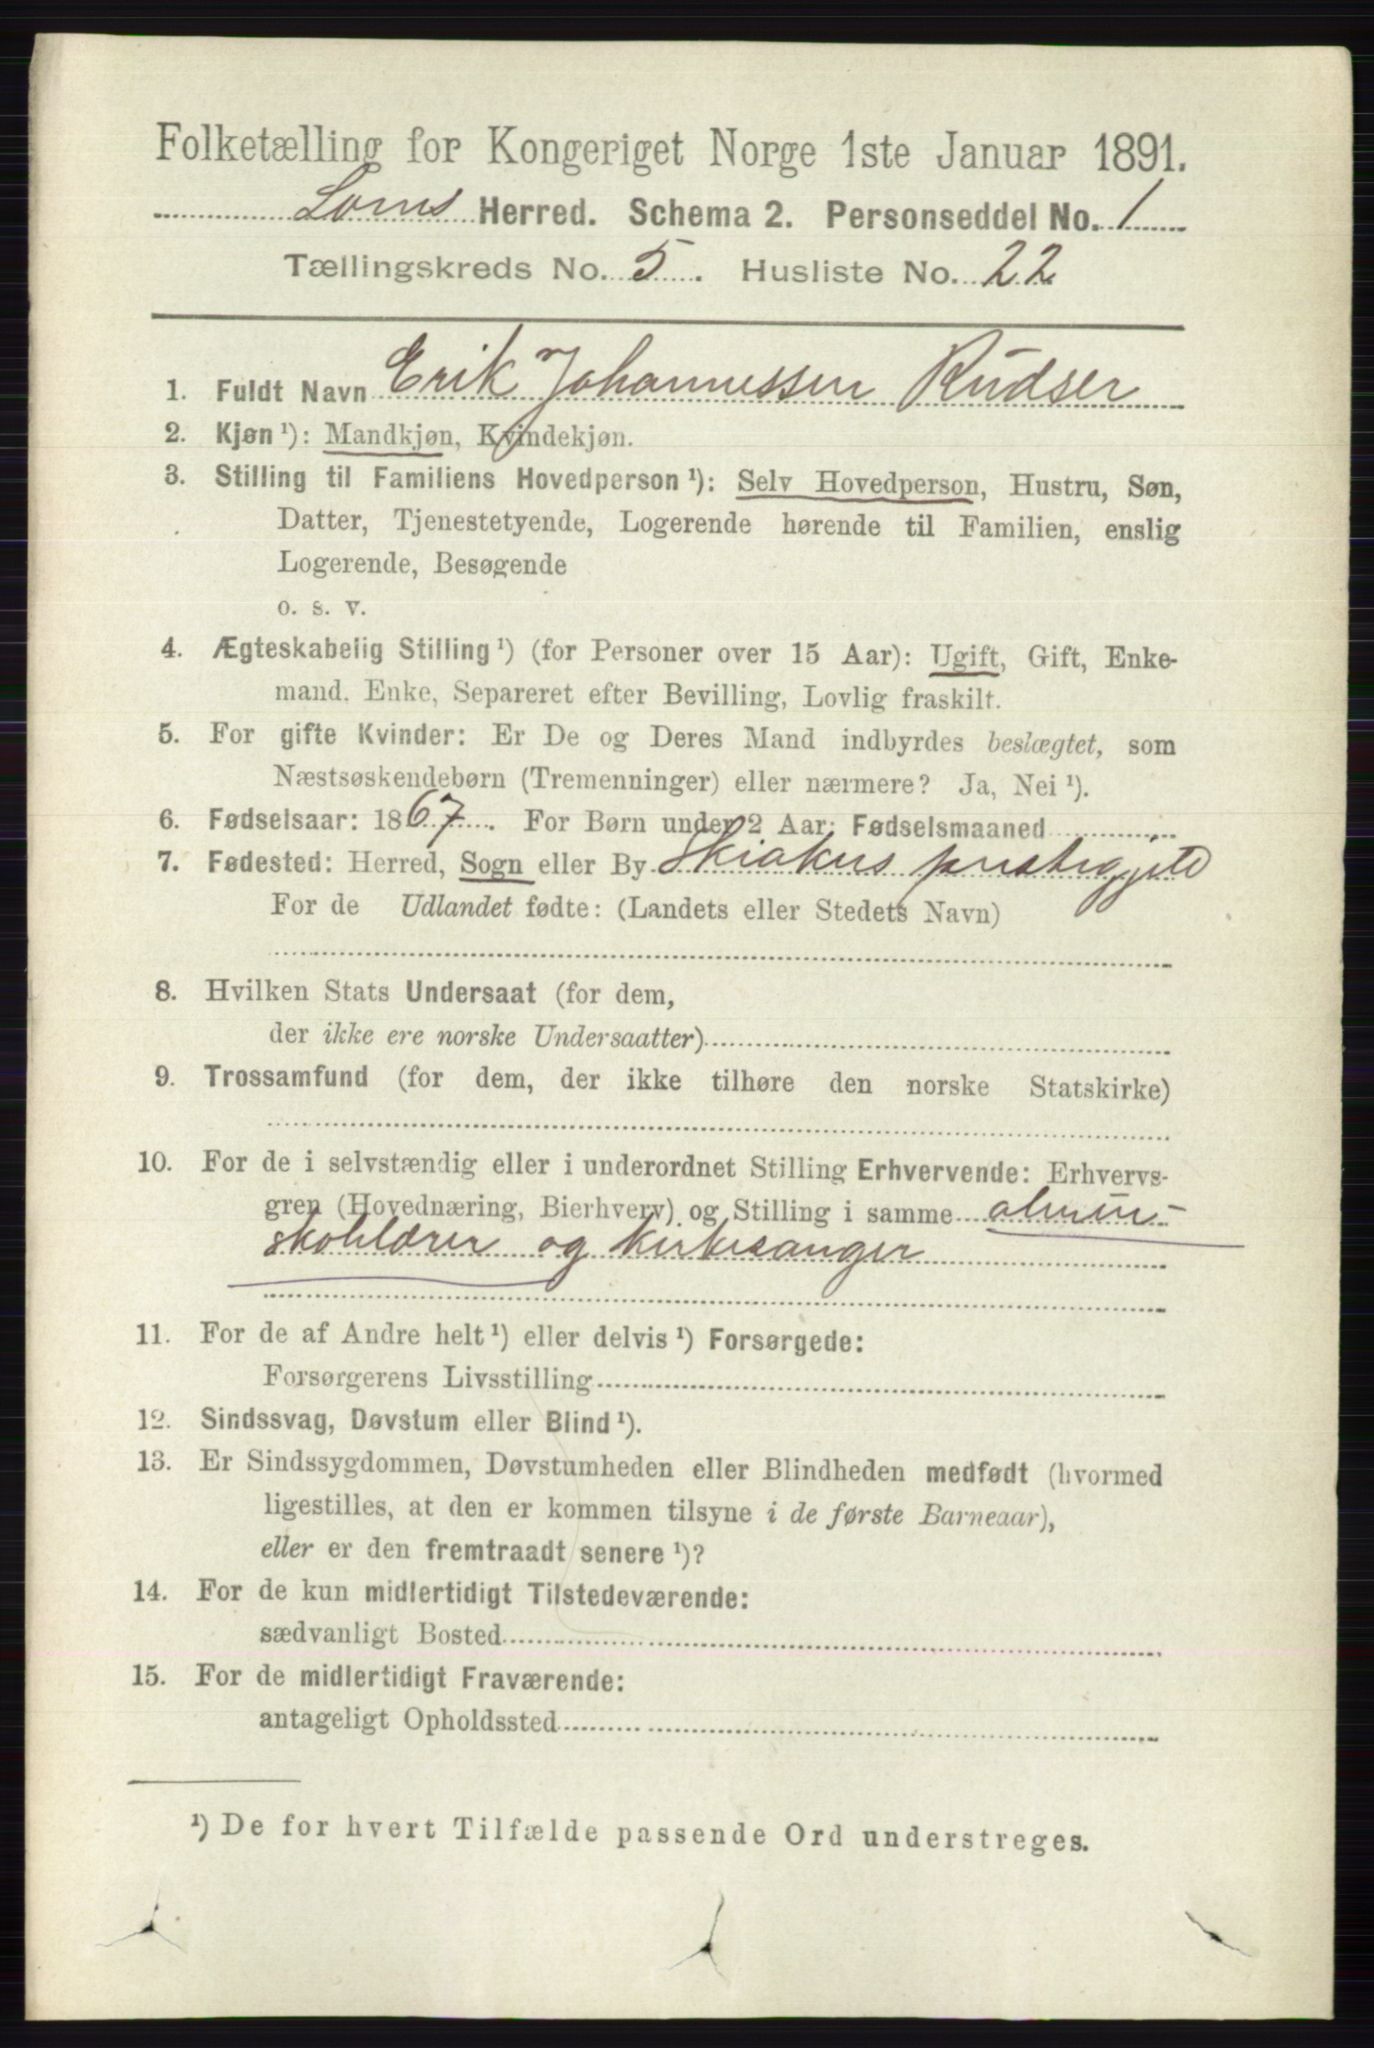 Folketælling for Kongeriget Norge 1ste Januar 1891.
Loms Herred. Schema 2. Personseddel No. 1
Tællingskreds No. 5. Husliste No. 22
1. Fuldt Navn Erik Johannessen Rudser
2. Kjøn ¹): Mandkjøn, Kvindekjøn.
3. Stilling til Familiens Hovedperson ¹): Selv Hovedperson, Hustru, Søn,
Datter, Tjenestetyende, Logerende hørende til Familien, enslig
Logerende, Besøgende
o. s. v.
4. Ægteskabelig Stilling ¹) (for Personer over 15 Aar): Ugift, Gift, Enke-
mand. Enke, Separeret efter Bevilling, Lovlig fraskilt.
5. For gifte Kvinder: Er De og Deres Mand indbyrdes beslægtet, som
Næstsøskendebørn (Tremenninger) eller nærmere? Ja, Nei ¹).
6. Fødselsaar: 1867. For Børn under 2 Aar: Fødselsmaaned
7. Fødested: Herred, Sogn eller By Skiakers præstegjeld
For de Udlandet fødte: (Landets eller Stedets Navn)
8. Hvilken Stats Undersaat (for dem,
der ikke ere norske Undersaatter)
9. Trossamfund (for dem, der ikke tilhøre den norske Statskirke)
10. For de i selvstændig eller i underordnet Stilling Erhvervende: Erhvervs-
gren (Hovednæring, Bierhverv) og Stilling i samme almu-
skolelærer og kirkesanger
11. For de af Andre helt ¹) eller delvis ¹) Forsørgede:
Forsørgerens Livsstilling
12. Sindssvag, Døvstum eller Blind ¹).
13. Er Sindssygdommen, Døvstumheden eller Blindheden medfødt (hvormed
ligestilles, at den er kommen tilsyne i de første Barneaar),
eller er den fremtraadt senere ¹)?
14. For de kun midlertidigt Tilstedeværende:
sædvanligt Bosted
15. For de midlertidigt Fraværende:
antageligt Opholdssted
¹) De for hvert Tilfælde passende Ord understreges.